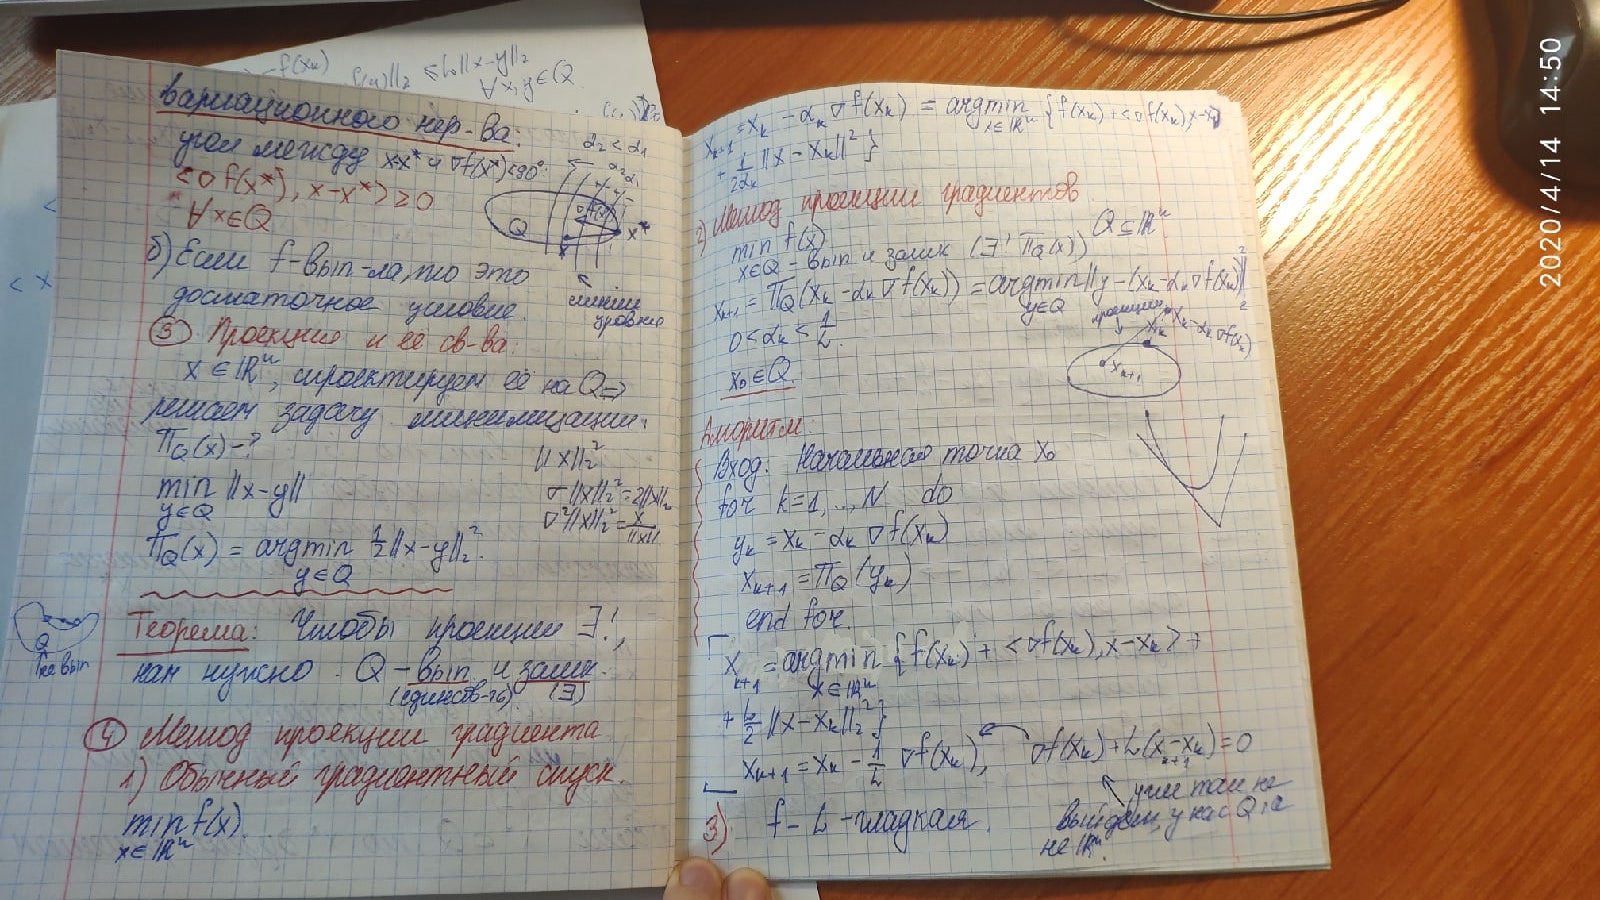 -f(xₖ)
≤ L₀||x-y||₂
∀x,y∈Q
вариационного нер-ва:
угол между x-x* и ∇f(x*)<90°:
<∇f(x*), x-x*> ≥ 0
∀x∈Q
α₂ < α₁
Q
x*
линии
уровня
б) Если f-вып-ла, то это
достаточное условие.
③ Проекция и её св-ва:
x∈ℝⁿ, спроектируем её на Q⇒
решаем задачу минимизации:
π_Q(x)-?
min ||x-y||
y∈Q
||x||₂²
∇||x||₂²=2||x||₂
∇²||x||₂²=x/||x||
π_Q(x) = argmin ½||x-y||₂².
y∈Q
Теорема: Чтобы проекция ∃!,
нам нужно Q – вып. и замк.
(единств-ть) (∃)
Q
не вып
④ Метод проекции градиента
1) Обычный градиентный спуск.
min f(x)
x∈ℝⁿ
xₖ₊₁ = xₖ - αₖ∇f(xₖ) = argmin {f(xₖ)+<∇f(xₖ), x-xₖ>
x∈ℝⁿ
+ 1/2αₖ ||x-xₖ||²}
2) Метод проекции градиентов
min f(x)
Q⊆ℝⁿ
x∈Q – вып и замк (∃! π_Q(x))
xₖ₊₁ = π_Q(xₖ-αₖ∇f(xₖ)) = argmin||y-(xₖ-αₖ∇f(xₖ))||₂²
y∈Q
0<αₖ<1/L.
x₀∈Q
проекция
xₖ
xₖ-αₖ∇f(xₖ)
xₖ₊₁
Алгоритм:
Вход: Начальная точка x₀
for k=1, ..., N do
yₖ = xₖ - αₖ∇f(xₖ)
xₖ₊₁ = π_Q(yₖ)
end for.
xₖ₊₁ = argmin {f(xₖ) + <∇f(xₖ), x-xₖ> +
x∈ℝⁿ
+ L/2 ||x-xₖ||₂²}
xₖ₊₁ = xₖ - 1/L ∇f(xₖ), ∇f(xₖ)+L(xₖ₊₁-xₖ)=0
не
выйдем, у нас Q, а
не ℝⁿ.
3) f – L-гладкая.
2020/4/14 14:50